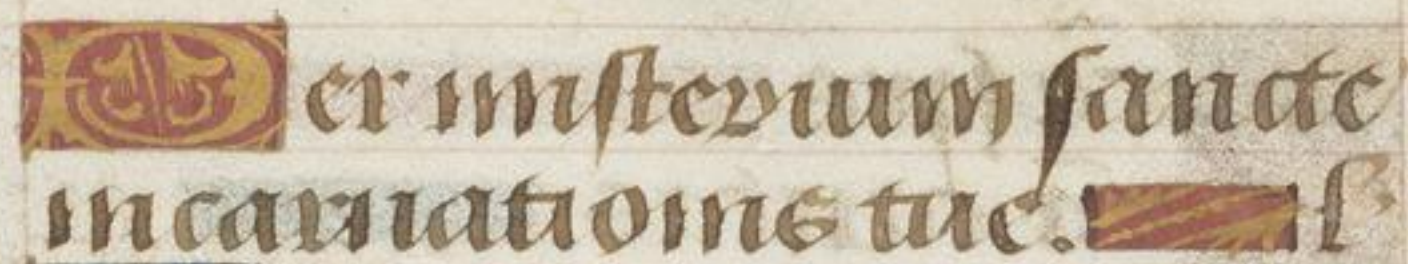 Per misterium sancte
incarnationis tue. l